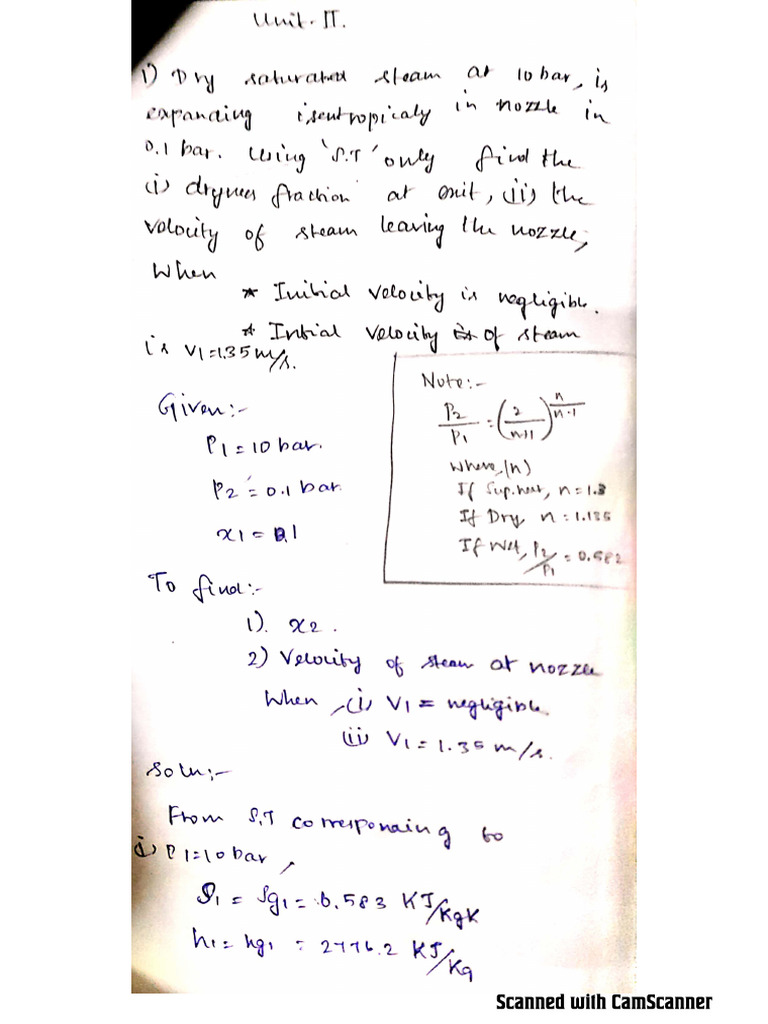 Unit-II.
1) Dry saturated steam at 10 bar, is
expanding isentropicaly in nozzle in
0.1 bar. Using 'S.T' only find the
(i) dryness fraction at exit, (ii) the
velocity of steam leaving the nozzle,
When
* Initial velocity is negligible.
* Intial velocity of steam
is V1=1.35 m/s.
Given:-
P1 = 10 bar.
P2 = 0.1 bar.
x1 = 1
Note:-
P2/P1 = (2/n+1)^n/n-1
Where, (n)
If Sup.heat, n=1.3
If Dry n = 1.135
If Wet, P2/P1 = 0.582
To find:-
1). x2.
2) Velocity of steam at nozzle
When, (i) V1 = negligible.
(ii) V1 = 1.35 m/s.
Soln:-
From S.T corresponding to
i) P1=10 bar,
S1 = Sg1 = 6.583 KJ/KgK
h1 = hg1 = 2776.2 KJ/Kg
Scanned with CamScanner